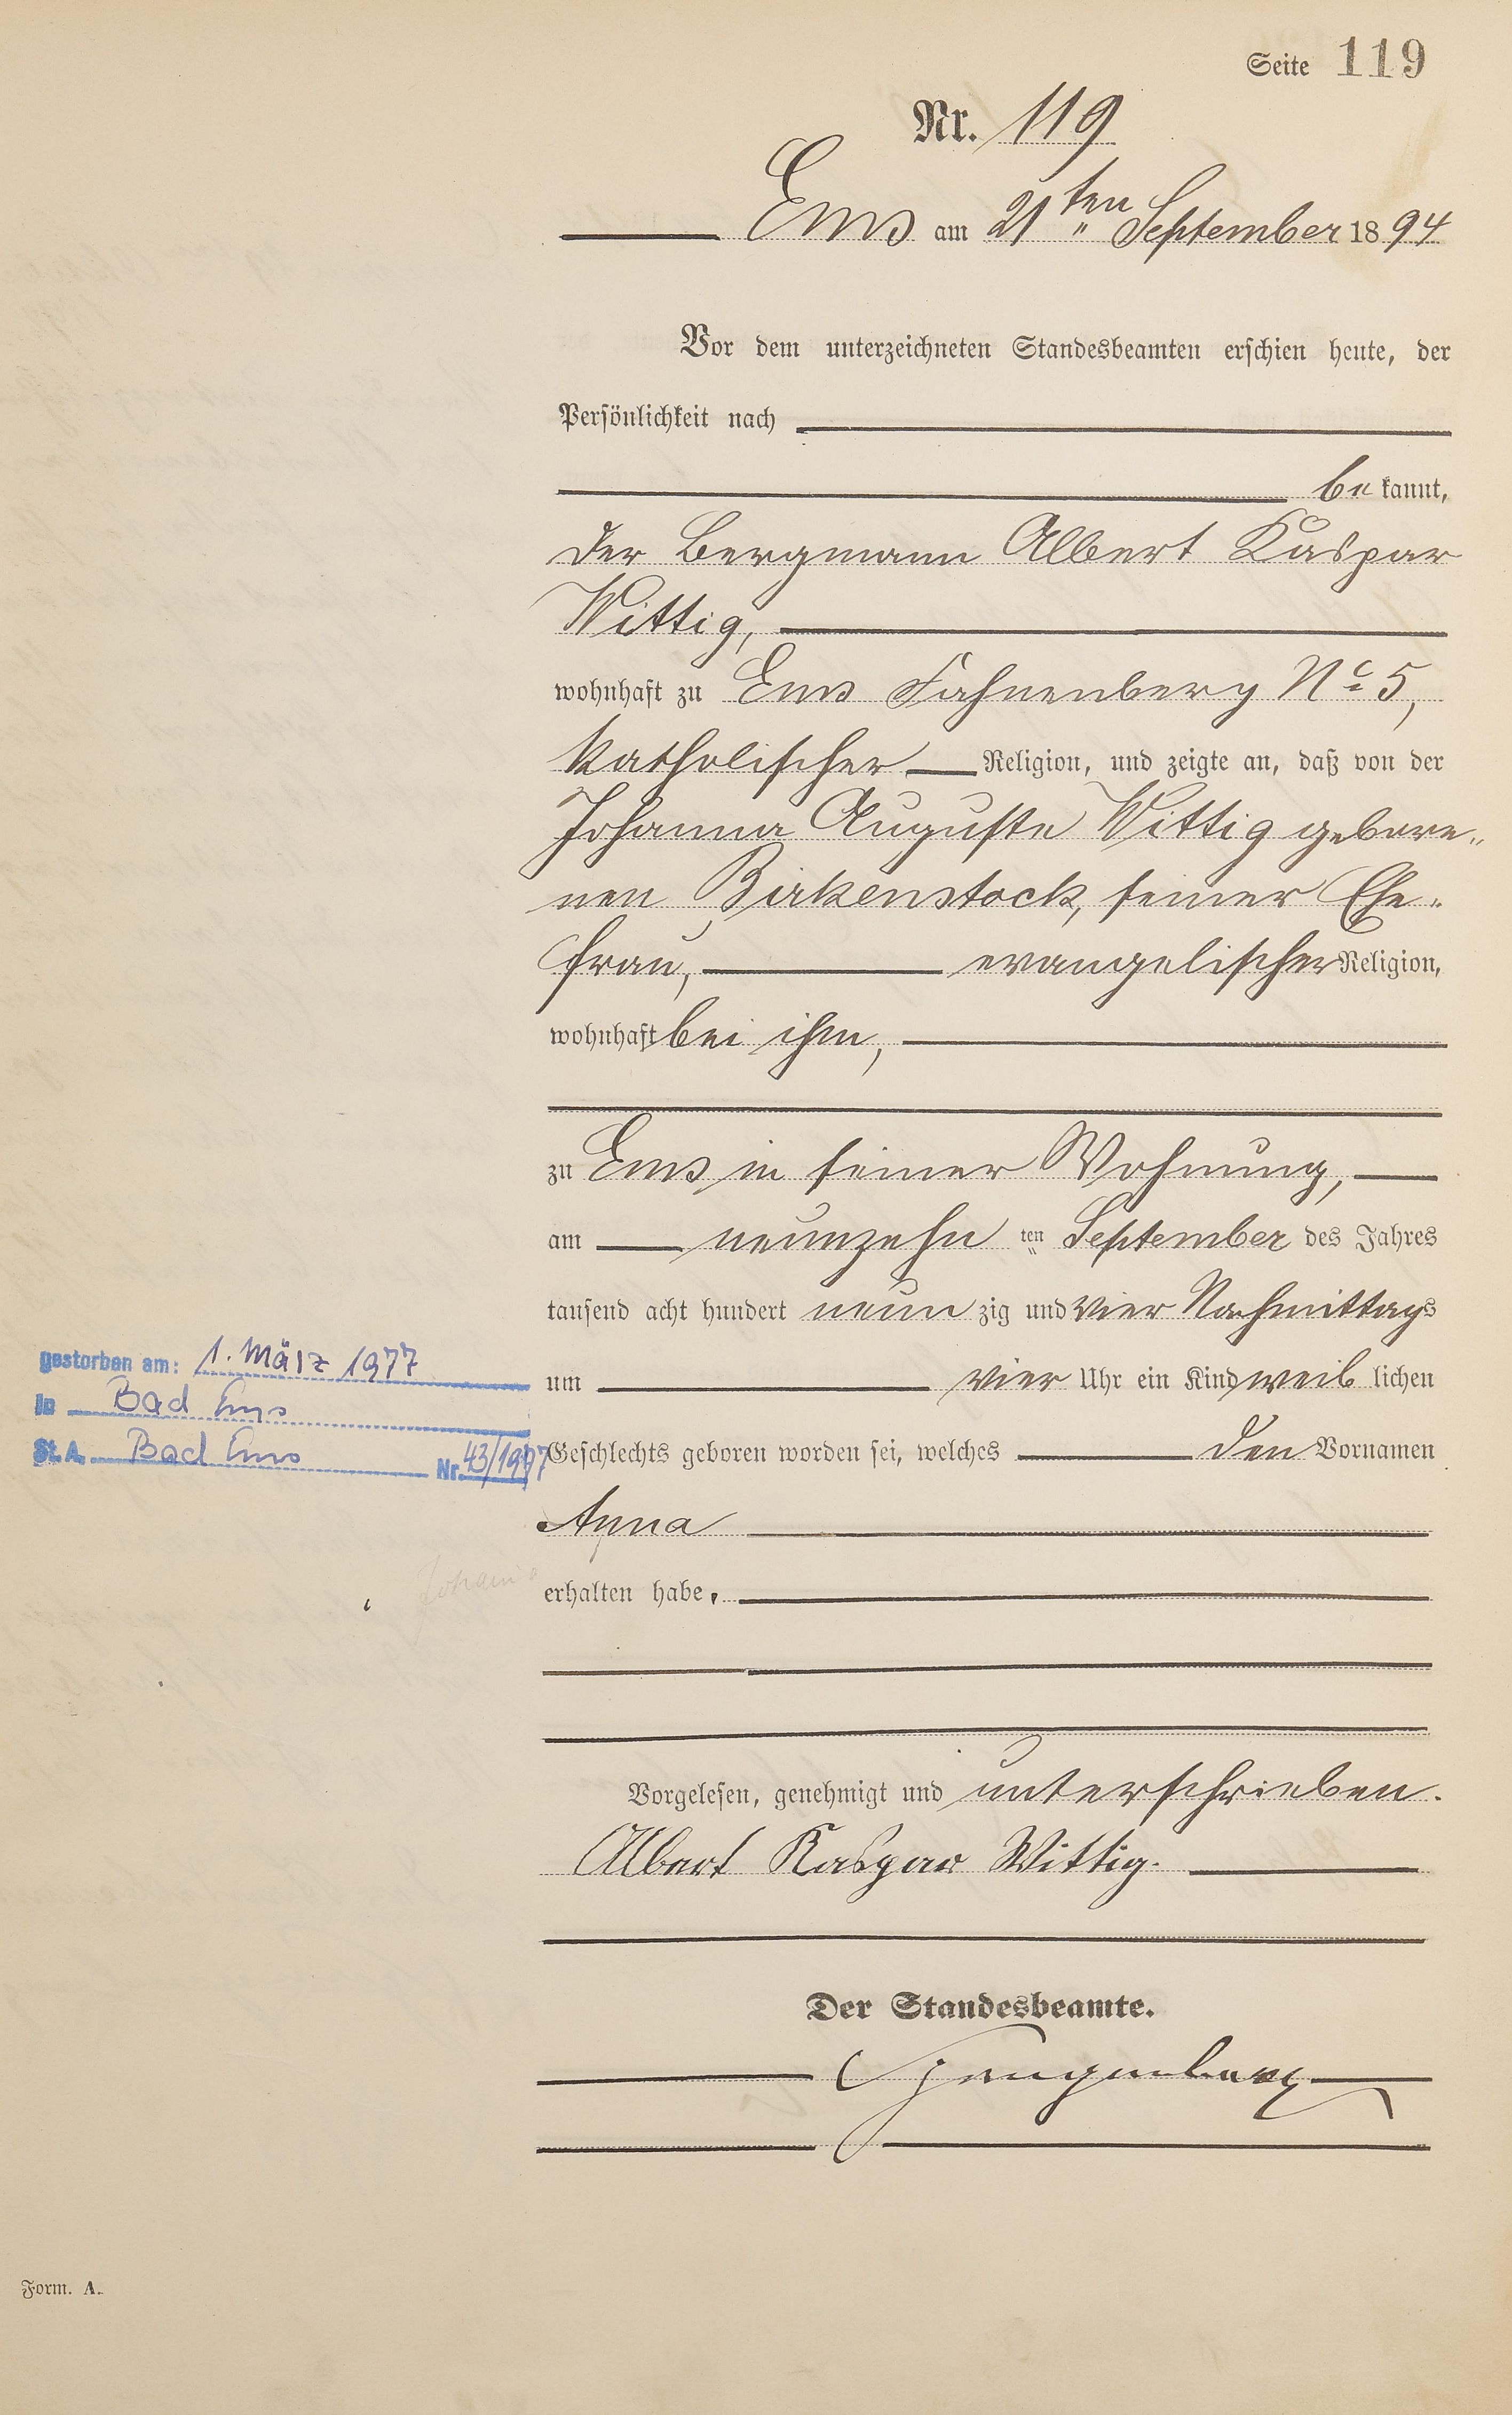 Seite 119
Nr. 119
Ems am 21ten September 1894
Vor dem unterzeichneten Standesbeamten erschien heute, der
Persönlichkeit nach
bekannt,
der Bergmann Albert Kaspar
Wittig,
wohnhaft zu Ems Fahnenberg No 5,
katholischer Religion, und zeigte an, daß von der
Johanna Auguste Wittig gebore„
nen Birkenstock, seiner Ehe„
frau, evangelischer Religion,
wohnhaft bei ihm,
zu Ems in seiner Wohnung,
am neunzehnten September des Jahres
tausend acht hundert neunzig und vier Nachmittags
um vier Uhr ein Kind weiblichen
Geschlechts geboren worden sei, welches den Vornamen
Anna
erhalten habe.
Vorgelesen, genehmigt und unterschrieben.
Albert Kaspar Wittig.
Der Standesbeamte.
gestorben am: 1. März 1977
in Bad Ems
St. A. Bad Ems Nr. 43/1977
Form. A.